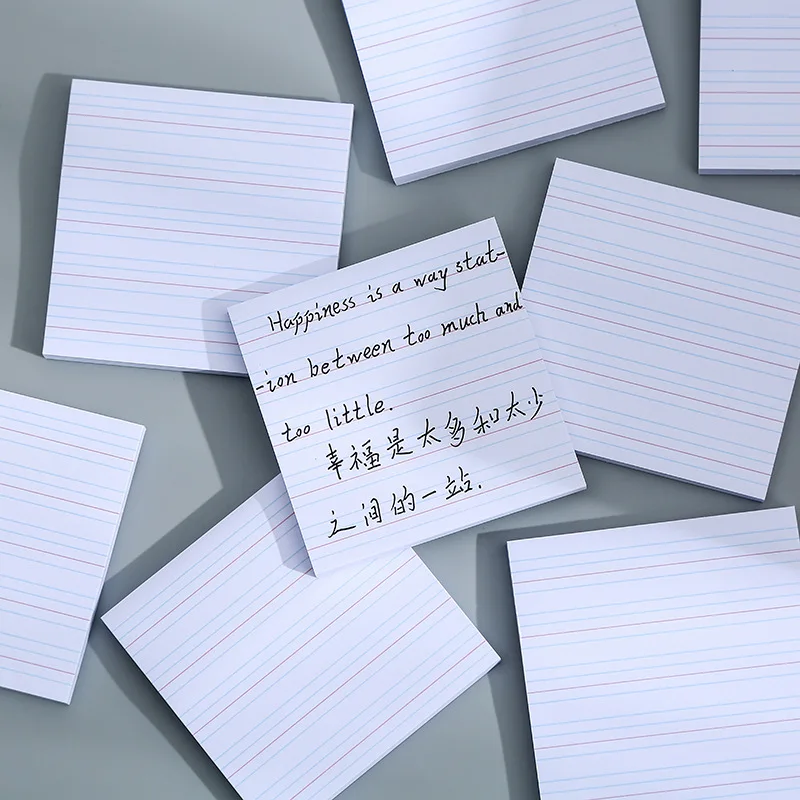 Happiness is a way stat-
-ion between too much and
too little.
幸福是太多和太少
之间的一站.